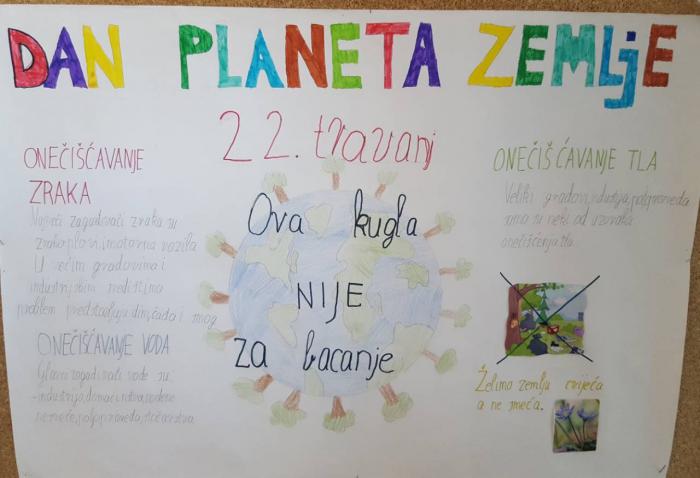 DAN PLANETA ZEMLjE
22. travanj
ONEČIŠĆAVANJE
ZRAKA
Najveći zagađivači zraka su
zrakoplovi, motorna vozila
U većim gradovima i
industrijskim
problem predstavljaju dim, čađa i smog
ONEČIŠĆAVANJE VODA
Glavni zagađivači vode su
-industrija,
poljoprivreda,
Ova kugla
NIJE
za bacanje
ONEČIŠĆAVANJE TLA
Veliki gradovi, industrija, poljoprivreda
samo su neki od uzroka
onečišćenja tla.
Želimo zemlju cvijeća
a ne smeća.